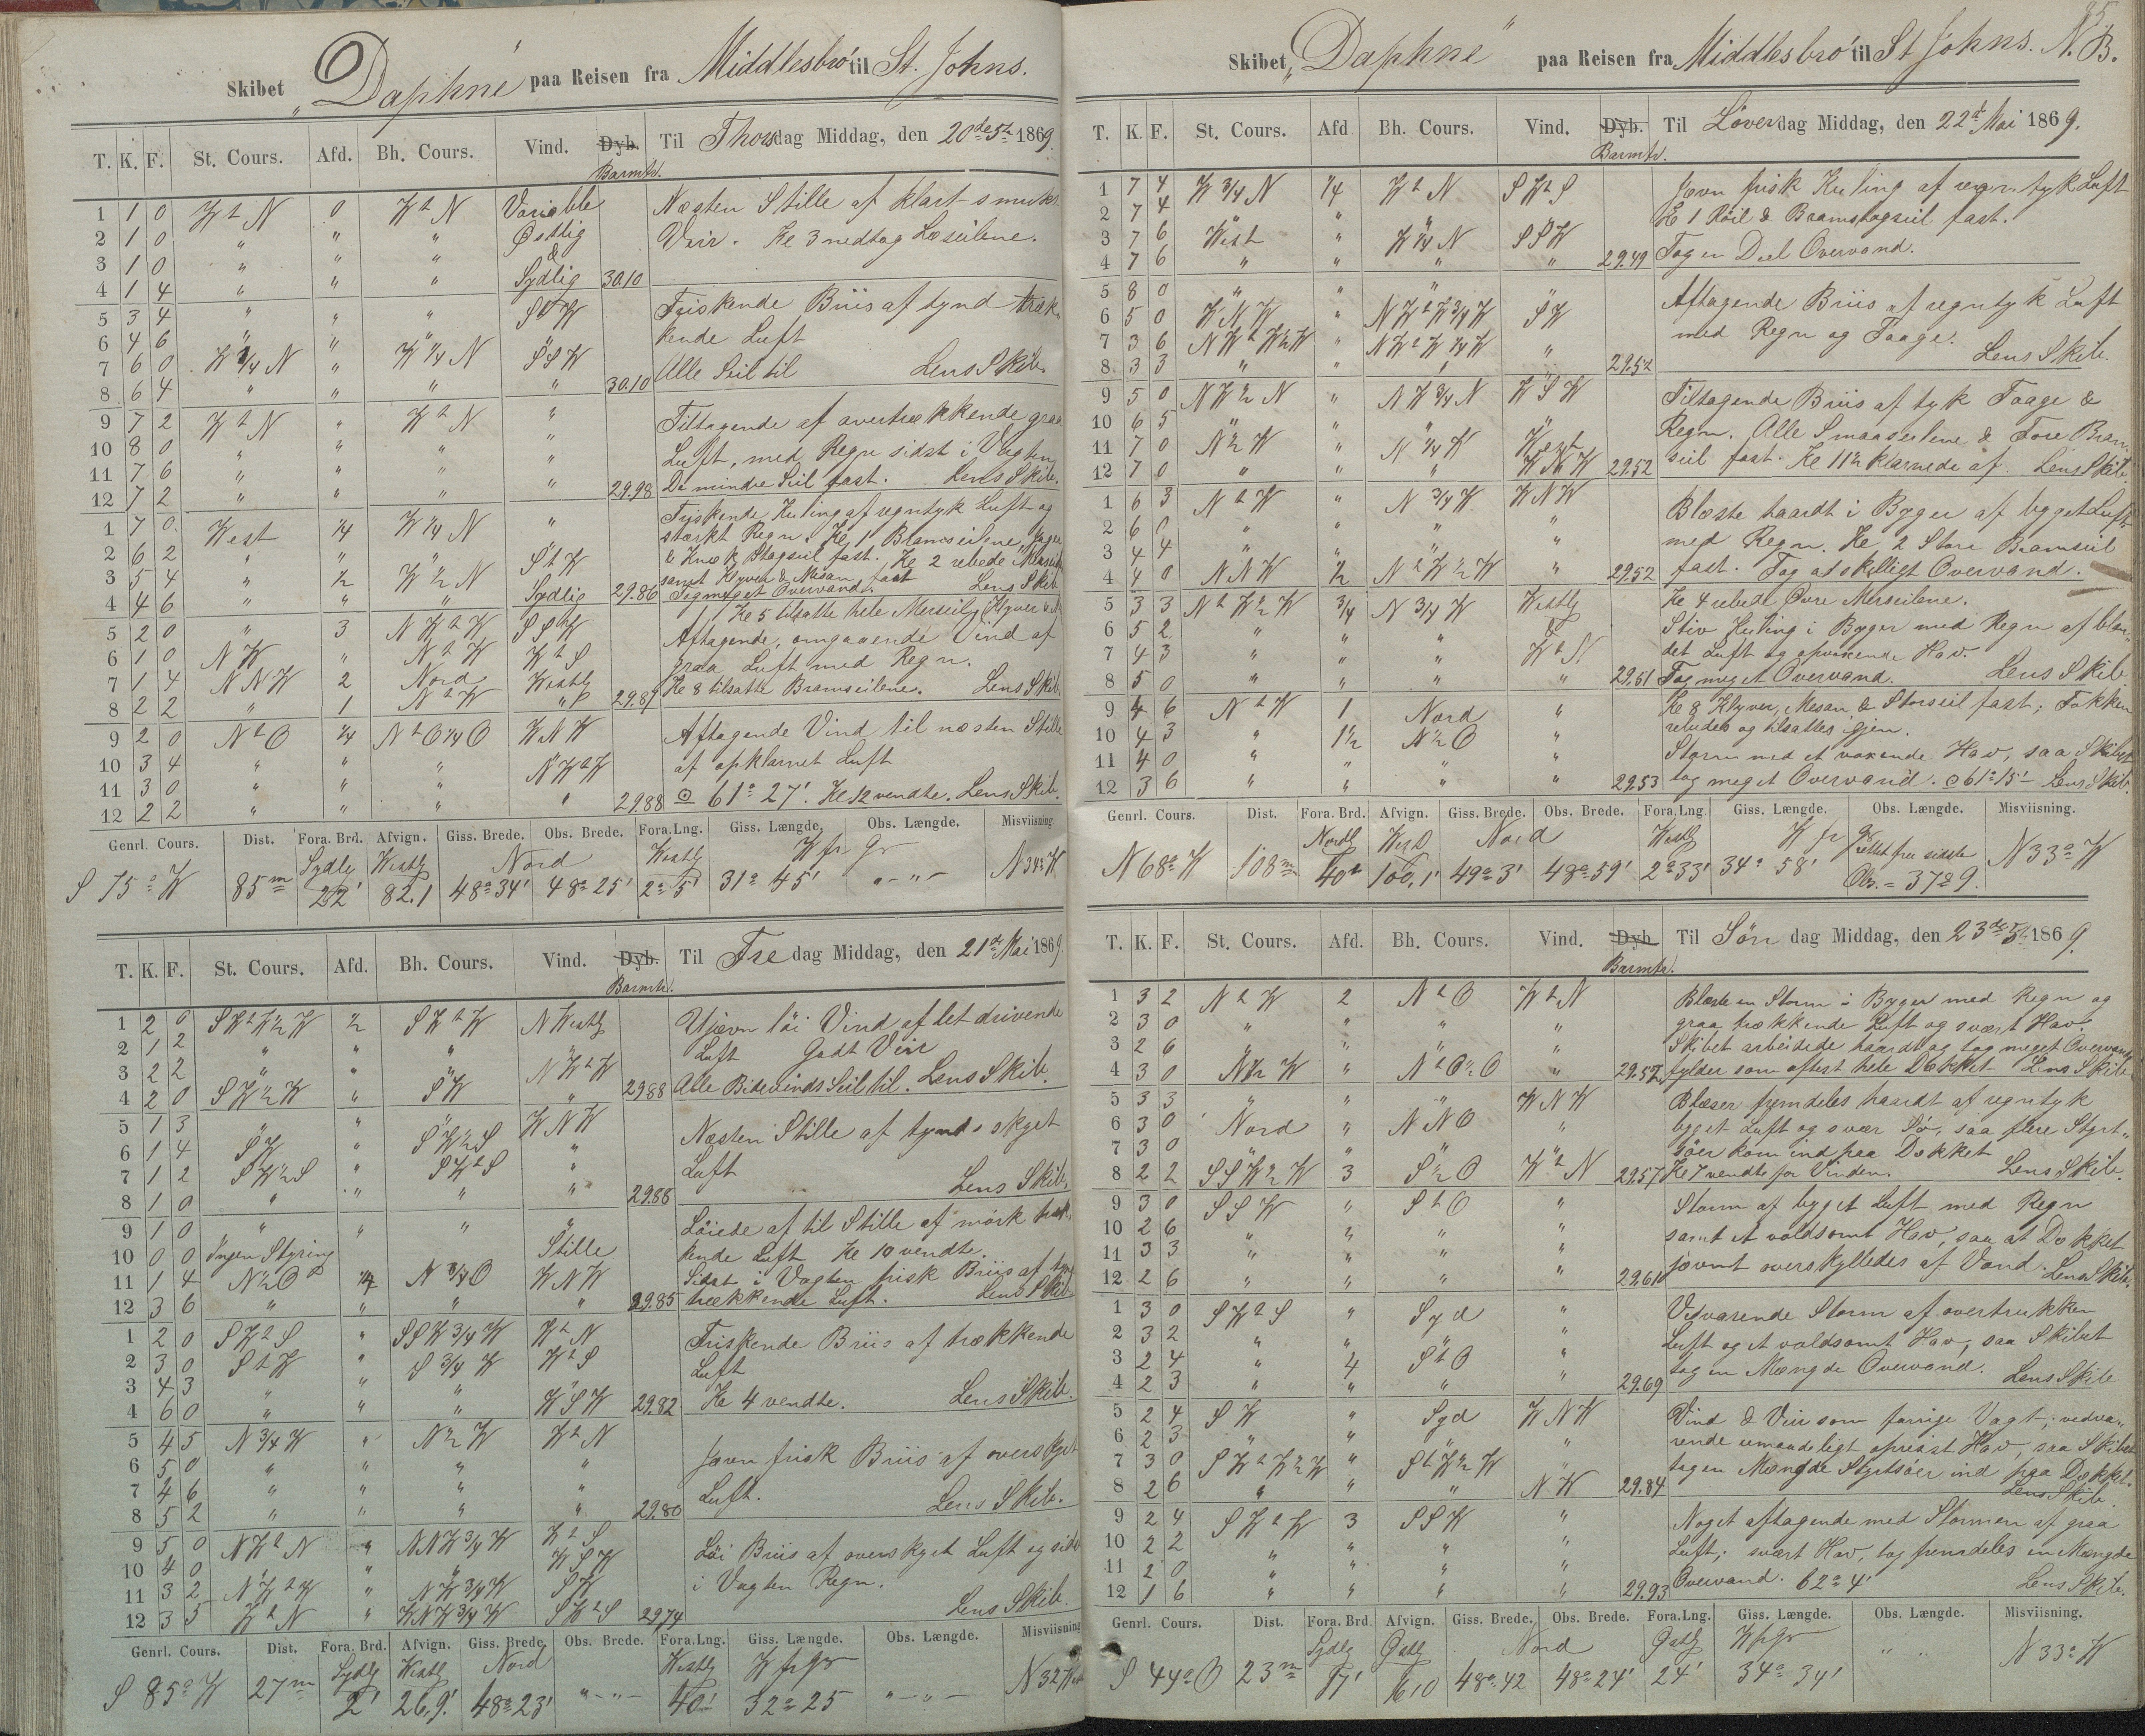 Skibet „Daphne" paa Reisen fra Middlesbro' til St. Johns.
T. K. F. St. Cours. Afd. Bh. Cours. Vind. Dyb. Barmtr. Til Thorsdag Middag, den 20de 5te 1869.
1 1 0 W t N 0 W t N Variable
2 1 0 " " " Østlig
3 1 0 " " " &
4 1 4 " " " Sydlig 30.10
Næsten Stille af klart smukt
Veir. Kl 3 nedtog Læseilene.
5 3 4 " " " SSW
6 4 6 " " " "
7 6 0 W 3/4 N " W 1/4 N SSW
8 6 4 " " " " 30.10
Friskende Briis af tynd træk-
kende Luft
Alle Seil til Lens Skib.
9 7 2 W t N " W t N "
10 8 0 " " " "
11 7 6 " " " "
12 7 2 " " " " 29.98
Tiltagende af overtrækkende graa
Luft, med Regn sidst i Vagten
De mindre Seil fast. Lens Skib.
1 7 0 West 1/4 W 1/4 N "
2 6 2 " " " S t W
3 5 4 " 1/2 W 1/2 N "
4 4 6 " " " Sydlig 29.86
Friskende Kuling af regntyk Luft og
stærkt Regn. Kl 1 Bramseilene, Jager
& Knæk Stagseil fast. Kl 2 rebede Merseil
samt Klyver & Mesan fast Lens Skib
Tog meget Overvand.
5 2 0 " 3 NW t W SSW
6 1 0 NW " N t W W t S
7 1 4 NNW 2 Nord Westlig
8 2 2 " 1 N t W " 29.87
Kl 5 tilsatte hele Merseil, Klyver &
Aftagende, omgaaende Vind af
graa Luft med Regn.
Kl 8 tilsatte Bramseilene. Lens Skib.
9 2 0 N t O 1/4 N t O 1/4 O WNW
10 3 4 " " " "
11 3 0 " " " NW t W
12 2 2 " " " " 29.88
Aftagende Vind til næsten Stille
af opklarnet Luft
⊙ 61° 27'. Kl 12 vendte. Lens Skib.
Genrl. Cours. Dist. Fora. Brd. Afvign. Giss. Brede. Obs. Brede. Fora. Lng. Giss. Længde. Obs. Længde. Misviisning.
Sydlg Westlg Nord Westlg W fr Gr
S 75° W 85m 22' 82.1 48° 34' 48° 25' 2° 5' 31° 45' " - " - N 34° W
T. K. F. St. Cours. Afd. Bh. Cours. Vind. Dyb. Barmtr. Til Fredag Middag, den 21de Mai 1869
1 2 0 SW t W 1/2 W 1/2 SW t W NWestlg
2 1 2 " " " "
3 2 2 " " " NW t W
4 2 0 SW 1/2 W " SW " 29.88
Ujævn löi Vind af let drivende
Luft Godt Veir
Alle Bidevinds Seil til. Lens Skib.
5 1 3 " " " WNW
6 1 4 SW " SW 1/2 S "
7 1 2 SW 1/2 S " SW t S "
8 1 0 " " " " 29.88
Næsten Stille af tynd skyet
Luft
Lens Skib.
9 1 0 " " " "
10 0 0 Ingen Styring Stille
11 1 4 N 1/2 O 1/4 N 3/4 O WNW
12 3 6 " " " " 29.85
Löiede af til Stille af mörk træk-
kende Luft Kl 10 vendte.
Sidst i Vagten frisk Briis af
trækkende Luft. Lens Skib
1 2 0 SW t S " SSW 3/4 W W t N
2 3 0 S t W " S 3/4 W W t S
3 4 3 " " " "
4 6 0 " " " WSW 29.82
Friskende Briis af trækkende
Luft
Kl 4 vendte. Lens Skib.
5 4 5 N 3/4 W " N 1/2 W W t N
6 5 0 " " " "
7 4 6 " " " "
8 5 2 " " " " 29.80
Jævn frisk Briis af overskyet
Luft.
Lens Skib.
9 5 0 NW t N " NNW 3/4 W W t S
10 4 0 " " " WSW
11 3 2 NW t W " NW 3/4 W SW
12 3 5 W t N " WNW 3/4 W SW t S 29.74
Löi Briis af overskyet Luft og sidst
i Vagten Regn.
Lens Skib.
Genrl. Cours. Dist. Fora. Brd. Afvign. Giss. Brede. Obs. Brede. Fora. Lng. Giss. Længde. Obs. Længde. Misviisning
Sydlg Westlg Nord Westlg W fr Gr
S 85° W 27m 2' 26.9' 48° 23' " - " - 40' 32° 25 " - " - N 32 W
85
Skibet „Daphne" paa Reisen fra Middlesbro' til St Johns. N. B.
T. K. F. St. Cours. Afd Bh. Cours. Vind. Dyb. Barmtr. Til Løverdag Middag, den 22de Mai 1869.
1 7 4 W 3/4 N 1/4 W t N SW t S
2 7 4 " " " "
3 7 6 West " W 1/4 N SSW
4 7 6 " " " " 29.49
Jævn frisk Kuling af regntyk Luft
Kl 1 Röil & Bramstagseil fast.
Tog en Deel Overvand.
5 8 0 " " " "
6 5 0 WNW " NW t W 3/4 W SW
7 3 6 NW t W 1/2 W " NW t W 1/4 W "
8 3 3 " " " " 29.52
Aftagende Briis af regntyk Luft
med Regn og Taage.
Lens Skib.
9 5 0 NW 1/2 N " NW 3/4 N WSW
10 6 5 " " " "
11 7 0 N 1/2 W " N 1/4 W West
12 7 0 " " " WNW 29.52
Tiltagende Briis af tyk Taage &
Regn. Alle Smaaseilene & Fore Bram-
seil fast. Kl 11 1/2 klarnede af. Lens Skib.
1 6 3 N t W " N 3/4 W WNW
2 6 0 " " " "
3 4 4 " " " "
4 4 0 NNW 1/2 N t W 1/2 W " 29.52
Blæste haardt i Byger af byget Luft
med Regn. Kl 2 Store Bramseil
fast. Tog adskilligt Overvand.
5 3 3 N t W 1/2 W 3/4 N 3/4 W Westlg
6 5 2 " " " &
7 4 3 " " " W t N
8 5 0 " " " " 29.51
Kl 4 rebede Övre Merseilene.
Stiv Kuling i Byger med Regn af blan-
det Luft og opvoxende Hav.
Tog meget Overvand. Lens Skib
9 4 6 N t W 1 Nord "
10 4 3 " 1 1/2 N 1/2 O "
11 4 0 " " " "
12 3 6 " " " " 29.53
Kl 8 Klyver, Mesan & Storseil fast; Fokken
rebedes og tilsattes igjen.
Storm med et voxende Hav, saa Skibet
tog meget Overvand. ⊙ 61° 15' - Lens Skib.
Genrl. Cours. Dist. Fora. Brd. Afvign. Giss. Brede. Obs. Brede. Fora. Lng Giss. Længde. Obs. Længde. Misviisning.
Nordlg West Nord Westlg W fr Gr rettet fra sidste
N 68° W 108m 40' 100.1' 49° 3' 48° 59' 2° 33' 34° 58' Obs. = 37° 9. N 33° W
T. K. F. St. Cours. Afd. Bh. Cours. Vind. Dyb Barmtr. Til Søndag Middag, den 23de 5te 1869.
1 3 2 N t W 2 N t O W t N
2 3 0 " " " "
3 2 6 " " " "
4 3 0 N 1/2 W " N t O 1/2 O " 29.57
Blæste en Storm i Byger med Regn og
graa trækkende Luft og svært Hav.
Skibet arbeidede haardt og tog meget Overvand,
fylder som oftest hele Dækket Lens Skib
5 3 3 " " " WNW
6 3 0 Nord " NNO "
7 3 0 " " " "
8 2 2 SSW 1/2 W 3 S 1/2 O W t N 29.57
Blæser fremdeles haardt af regntyk
byget Luft og svær Sö, saa flere Styrt-
söer kom ind paa Dækket
Kl 7 vendte for Vinden. Lens Skib.
9 3 0 SSW " S t O "
10 2 6 " " " "
11 3 3 " " " "
12 2 6 " " " " 29.61
Storm af byget Luft med Regn
samt et voldsomt Hav, saa at Dækket
jævnt overskylledes af Vand. Lens Skib.
1 3 0 SW t S " Syd "
2 3 2 " " " "
3 2 4 " 4 S t O "
4 2 3 " " " " 29.69
Vedvarende Storm af overtrukken
Luft og et voldsomt Hav, saa Skibet
tog en Mængde Overvand. Lens Skib
5 2 4 SW " Syd WNW
6 2 3 " " " "
7 3 0 SW t W 1/2 W " S t W 1/2 W "
8 2 6 " " " NW 29.84
Vind & Veir som forrige Vagt; vedva-
rende umaadeligt opreist Hav, saa Skibet
tog en Mængde Styrtsöer ind paa Dækket.
Lens Skib.
9 2 4 SW t W 3 SSW "
10 2 2 " " " "
11 2 0 " " " "
12 1 6 " " " " 29.93
Noget aftagende med Stormen af graa
Luft; svært Hav, tog fremdeles en Mængde
Overvand. 62° 4' Lens Skib.
Genrl. Cours. Dist. Fora. Brd Afvign. Giss. Brede. Obs. Brede. Fora. Lng. Giss. Længde. Obs. Længde. Misviisning.
Sydlg Østlg Nord Østlg W fr Gr
S 44° O 23m 17' 16.0 48° 42 48° 24' 24' 34° 34' " " N 33° W